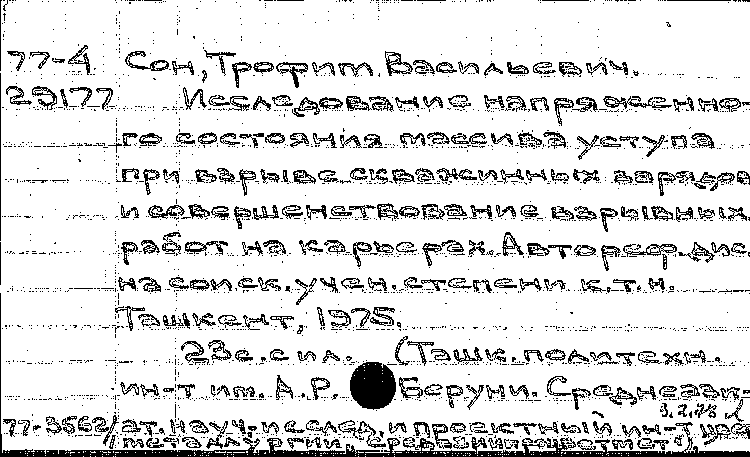 77-4 Сон, Трофит Васильевич.
29177 Исследование напряженно-
го состояния массива уступа
при взрыве скважинных зарядов
и совершенствование взрывных
работ на карьерах. Автореф. дис.
на соиск. учен. степени к.т.н.
Ташкент, 1975.
23 с. с ил. (Ташк. политехн.
ин-т им. А.Р. Беруни. Среднеази-
3.2.78
77-3562 ат. науч.-исслед. и проектный ин-т цвет
металлургии, "Средазнипроцветмет"),